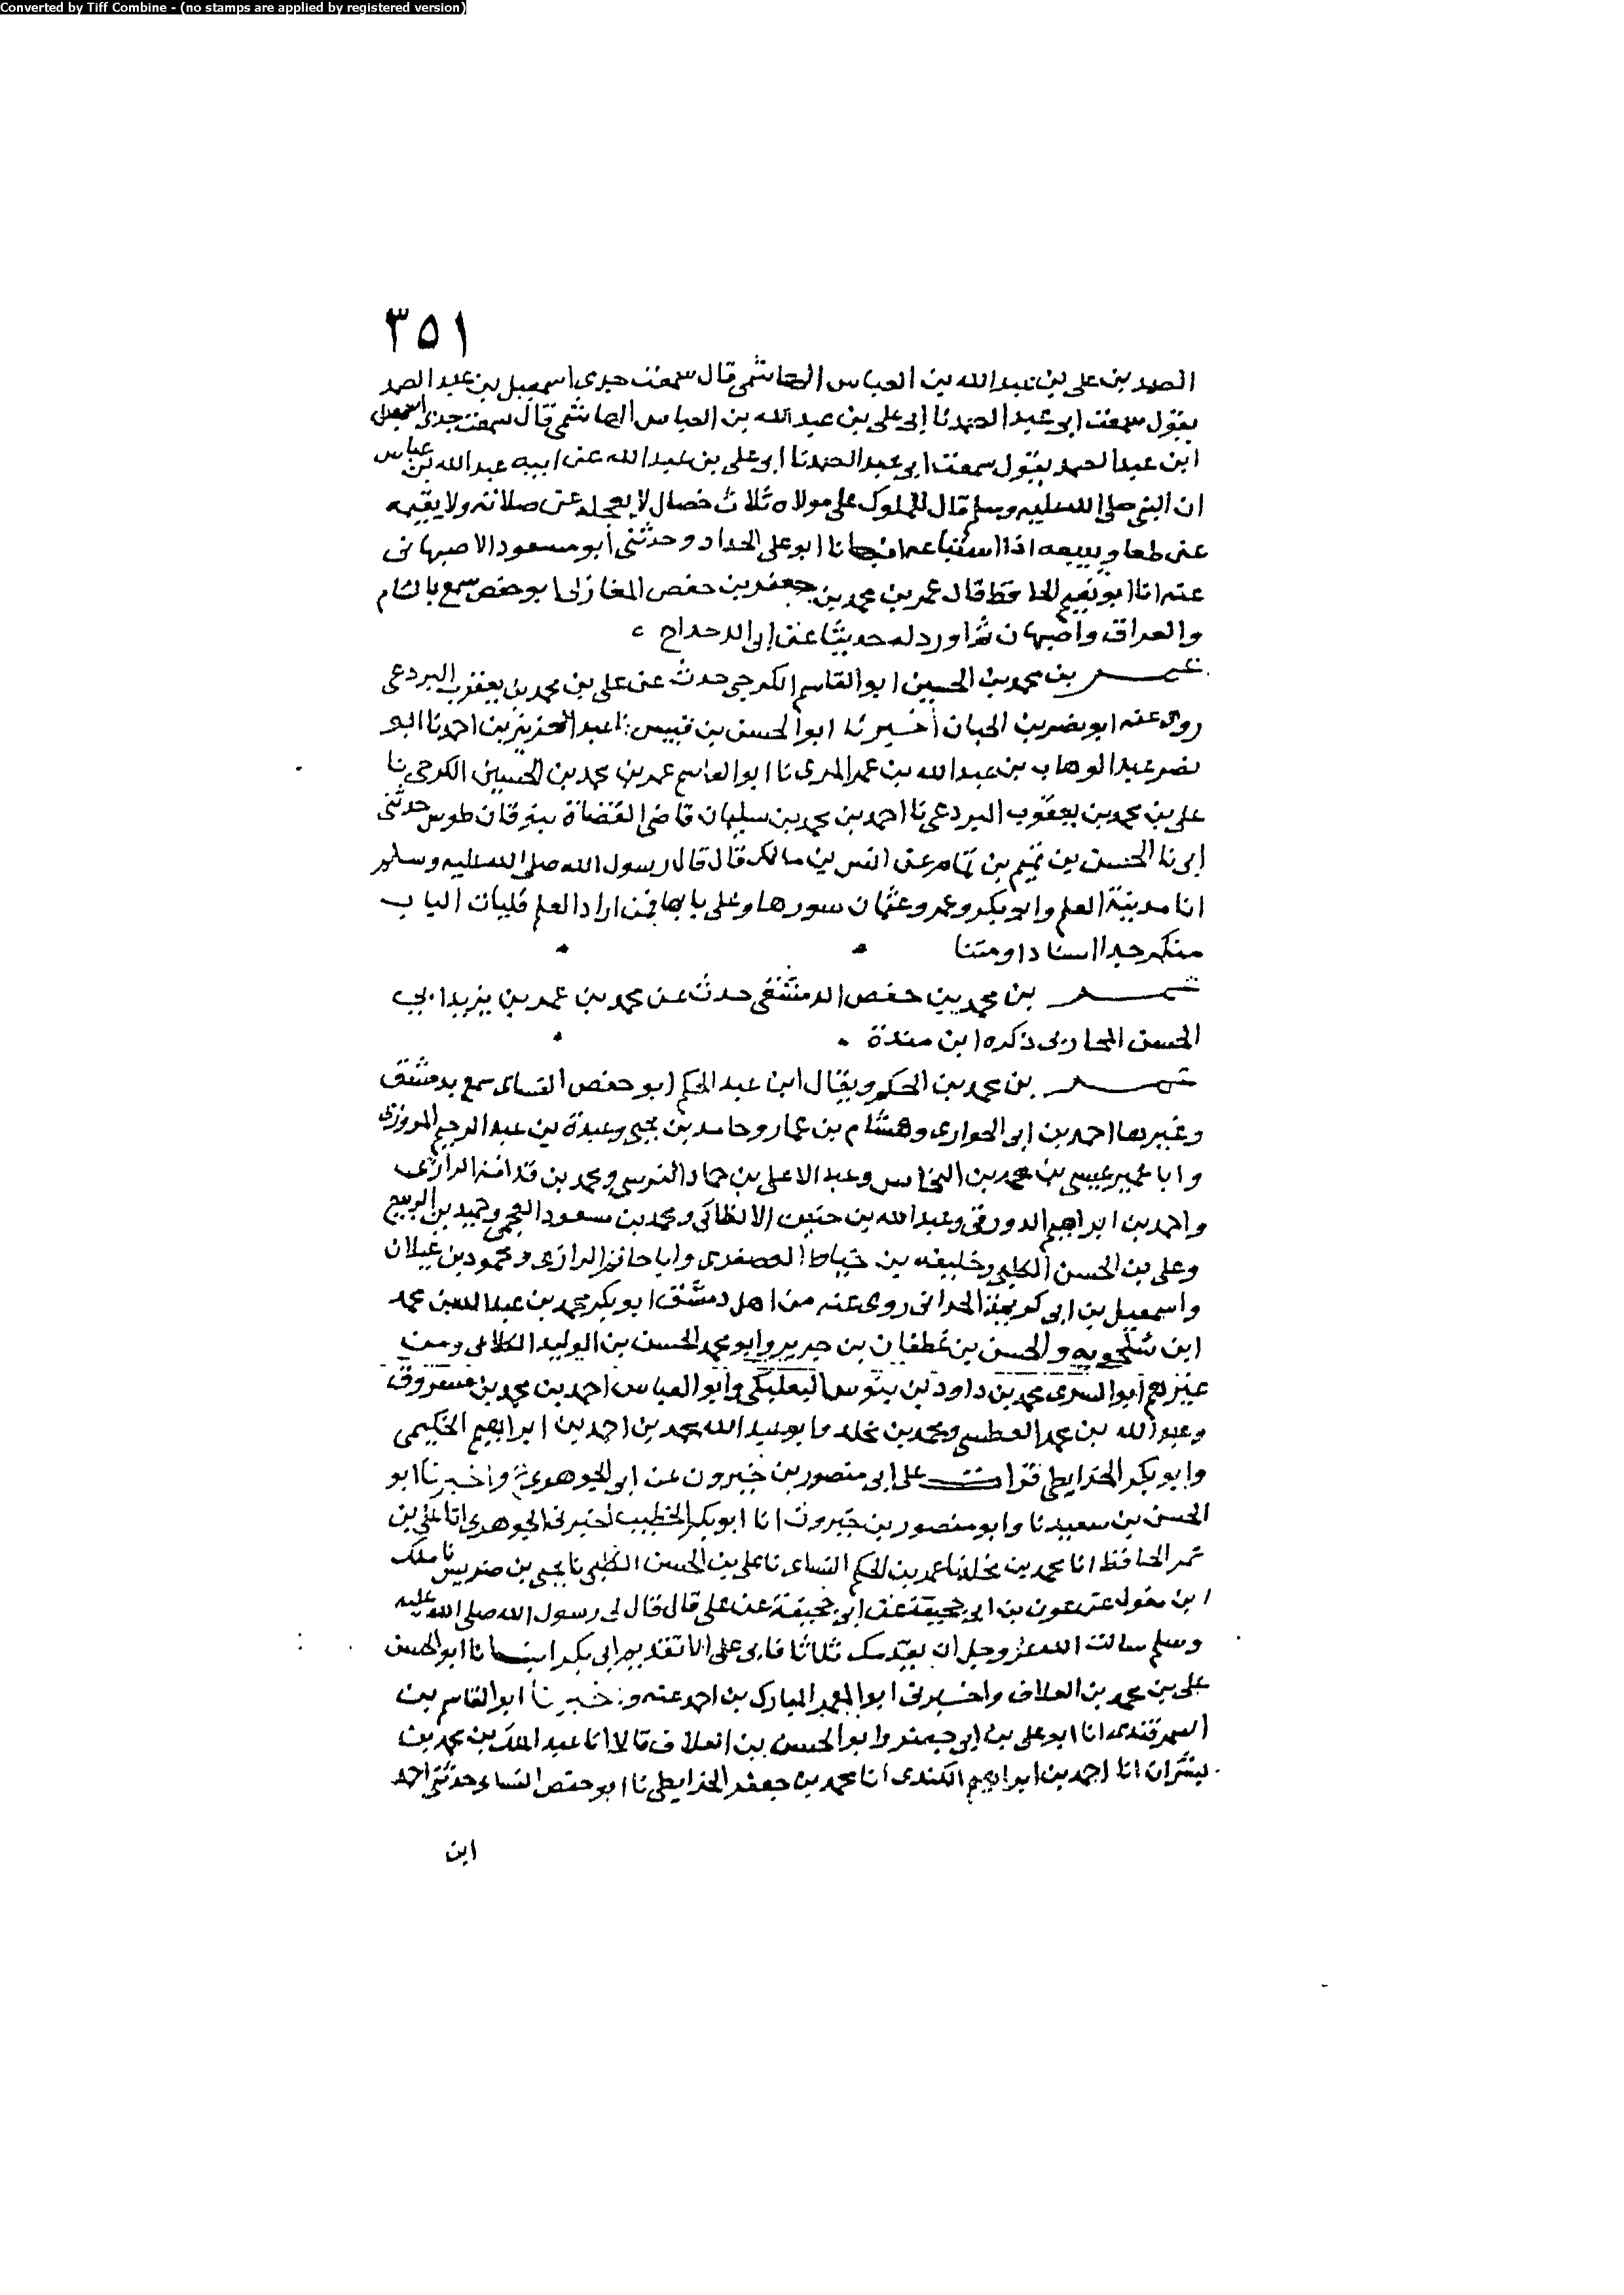 Converted by Tiff Combine - (no stamps are applied by registered version)
٣٥١
الصمد بن علي بن عبد الله بن العباس الهاشمى قال سمعت جدى اسمعيل بن عبد الصمد
يقول سمعت ابى عبد الصمد نا ابى على بن عبد الله بن العباس الهاشمى قال سمعت جدى اسمعيل
ابن عبد الصمد يقول سمعت ابى عبد الصمد نا ابى على بن عبد الله عن ابيه عبد الله بن عباس
ان النبى صلى الله عليه وسلم قال للمملوك على مولاه ثلاث خصال لا يعجله عن صلاته ولا يقيمه
عن طعامه ويبيعه اذا استباعه انبانا ابو على الحداد وحدثنى أبو مسعود الاصبهانى
عنه انا ابو نعيم الحافظ قال عمر بن محمد بن جعفر بن حفص المغازلى ابو حفص سمع بالشام
والعراق واصبهان ثم اورد له حديثا عن ابى الدحداح ء
عمر بن محمد بن الحسين ابو القاسم الكرجى حدث عن على بن محمد بن يعقوب البردعى
روى عنه ابو نصر بن الجبان أخبرنا ابو الحسن بن قبيس نا عبد العزيز بن احمد نا ابو
نصر عبد الوهاب بن عبد الله بن عمر المرى نا ابو القاسم عمر بن محمد بن الحسين الكرجى نا
على بن محمد بن يعقوب البردعى نا احمد بن محمد بن سليمان قاضى القضاة بنوقان طوس حدثنى
ابى نا الحسن بن تميم بن تمام عن انس بن مالك قال قال رسول الله صلى الله عليه وسلم
انا مدينة العلم وابو بكر وعمر وعثمان سورها وعلى بابها فمن اراد العلم فليات الباب
منكر جدا اسنادا ومتنا
عمر بن محمد بن حفص الدمشقى حدث عن محمد بن عمر بن يزيد ابى
الحسن المحاربى ذكره ابن مندة
عمر بن محمد بن الحكم ويقال ابن عبد الحكم ابو حفص النساى سمع بدمشق
وغيرها احمد بن ابى الحوارى وهشام بن عمار وحامد بن يحيى وعبدة بن عبد الرحيم المروزى
وابا عمير عيسى بن محمد بن النحاس وعبد الاعلى بن حماد النرسى ومحمد بن قدامة الرازى
واحمد بن ابراهيم الدورقى وعبد الله بن خبيق الانطاكى ومحمد بن مسعود العجمى وحميد بن الربيع
وعلى بن الحسن الكلبى وخليفه بن خياط العصفرى وابا حاتم الرازى ومحمود بن غيلان
واسمعيل بن ابى كريمة الحرانى روى عنه من اهل دمشق ابو بكر محمد بن عبد الله بن محمد
ابن شلحويه والحسن بن غطفان بن جرير وابو محمد الحسن بن الوليد الكلاعى ومن
غيرهم أبو السرى محمد بن داود بن بنوس البعلبكى وأبو العباس احمد بن محمد بن مسروق
وعبد الله بن محمد العطشى ومحمد بن مخلد وابو عبد الله محمد بن احمد بن ابراهيم الحكيمى
وابو بكر الخرايطى قرات على ابى منصور بن خيرون عن ابى الجوهرى ح واخبرنا ابو
الحسن بن سعيد نا وابو منصور بن خيرون انا ابو بكر الخطيب اخبرنى الجوهرى انا على بن
عمر الحافظ انا محمد بن مخلد نا عمر بن الحكم النساى نا على بن الحسن الكلبى نا يحيى بن ضريس نا ملك
ابن مغول عن عون بن ابى جحيفة عن ابى جحيفة عن على قال قال لى رسول الله صلى الله عليه
وسلم سالت الله عز وجل ان يقدمك ثلاثا فابى على الا تقديم ابى بكر انبانا ابو الحسن
على بن محمد بن العلاف واخبرنى ابو المعمر المبارك بن احمد عنه واخبرنا ابو القاسم بن
السمرقندى انا ابو على بن ابى جعفر وابو الحسن بن العلاف قالا انا عبد الملك بن محمد بن
بشران انا احمد بن ابراهيم الكندى انا محمد بن جعفر الخرايطى نا ابو حفص النساى حدثنى احمد
ابن